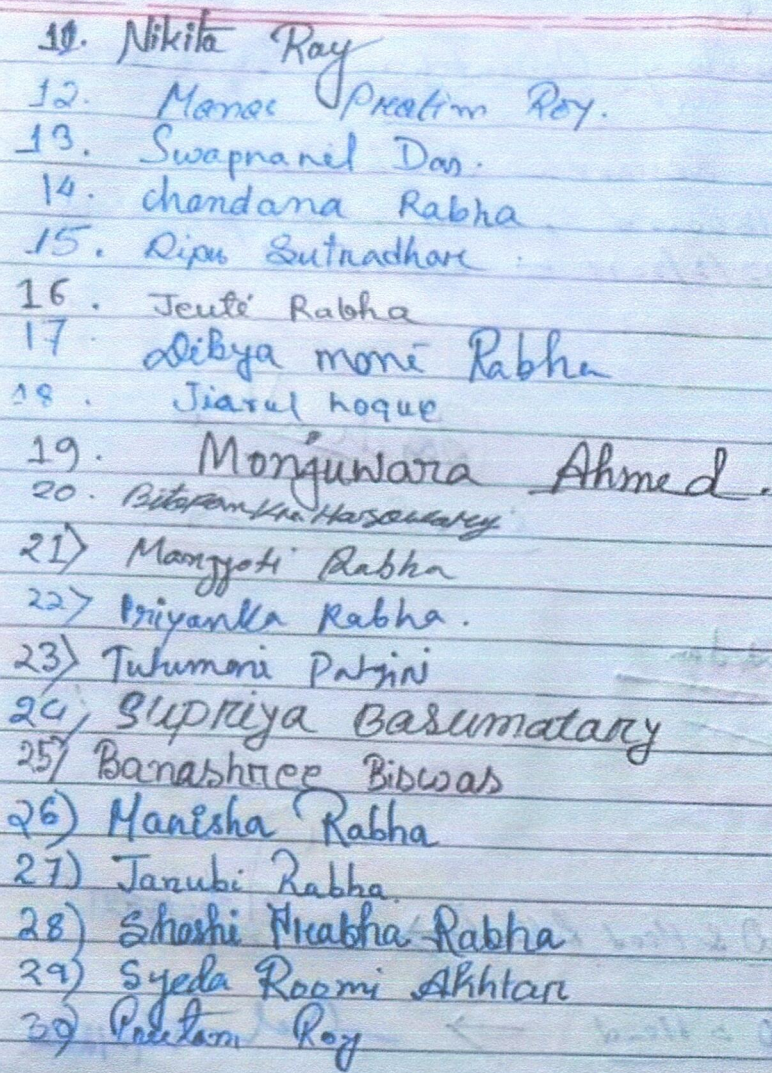 11. Nikita Ray
12. Manas Pratim Roy.
13. Swapnanil Das.
14. Chandana Rabha
15. Dipu Sutradhar
16. Jeuti Rabha
17 Dibya moni Rabha
18. Jiarul hoque
19. Monjuwara Ahmed.
20.
21) Manjyoti Rabha
22) Priyanka Rabha.
23) Tulumoni
24) Supriya Basumatary
25) Banashree Biswas
26) Manisha Rabha
27) Janubi Rabha.
28) Shashi Prabha Rabha
29) Syeda Roomi Akhtar
30) Preetam Roy